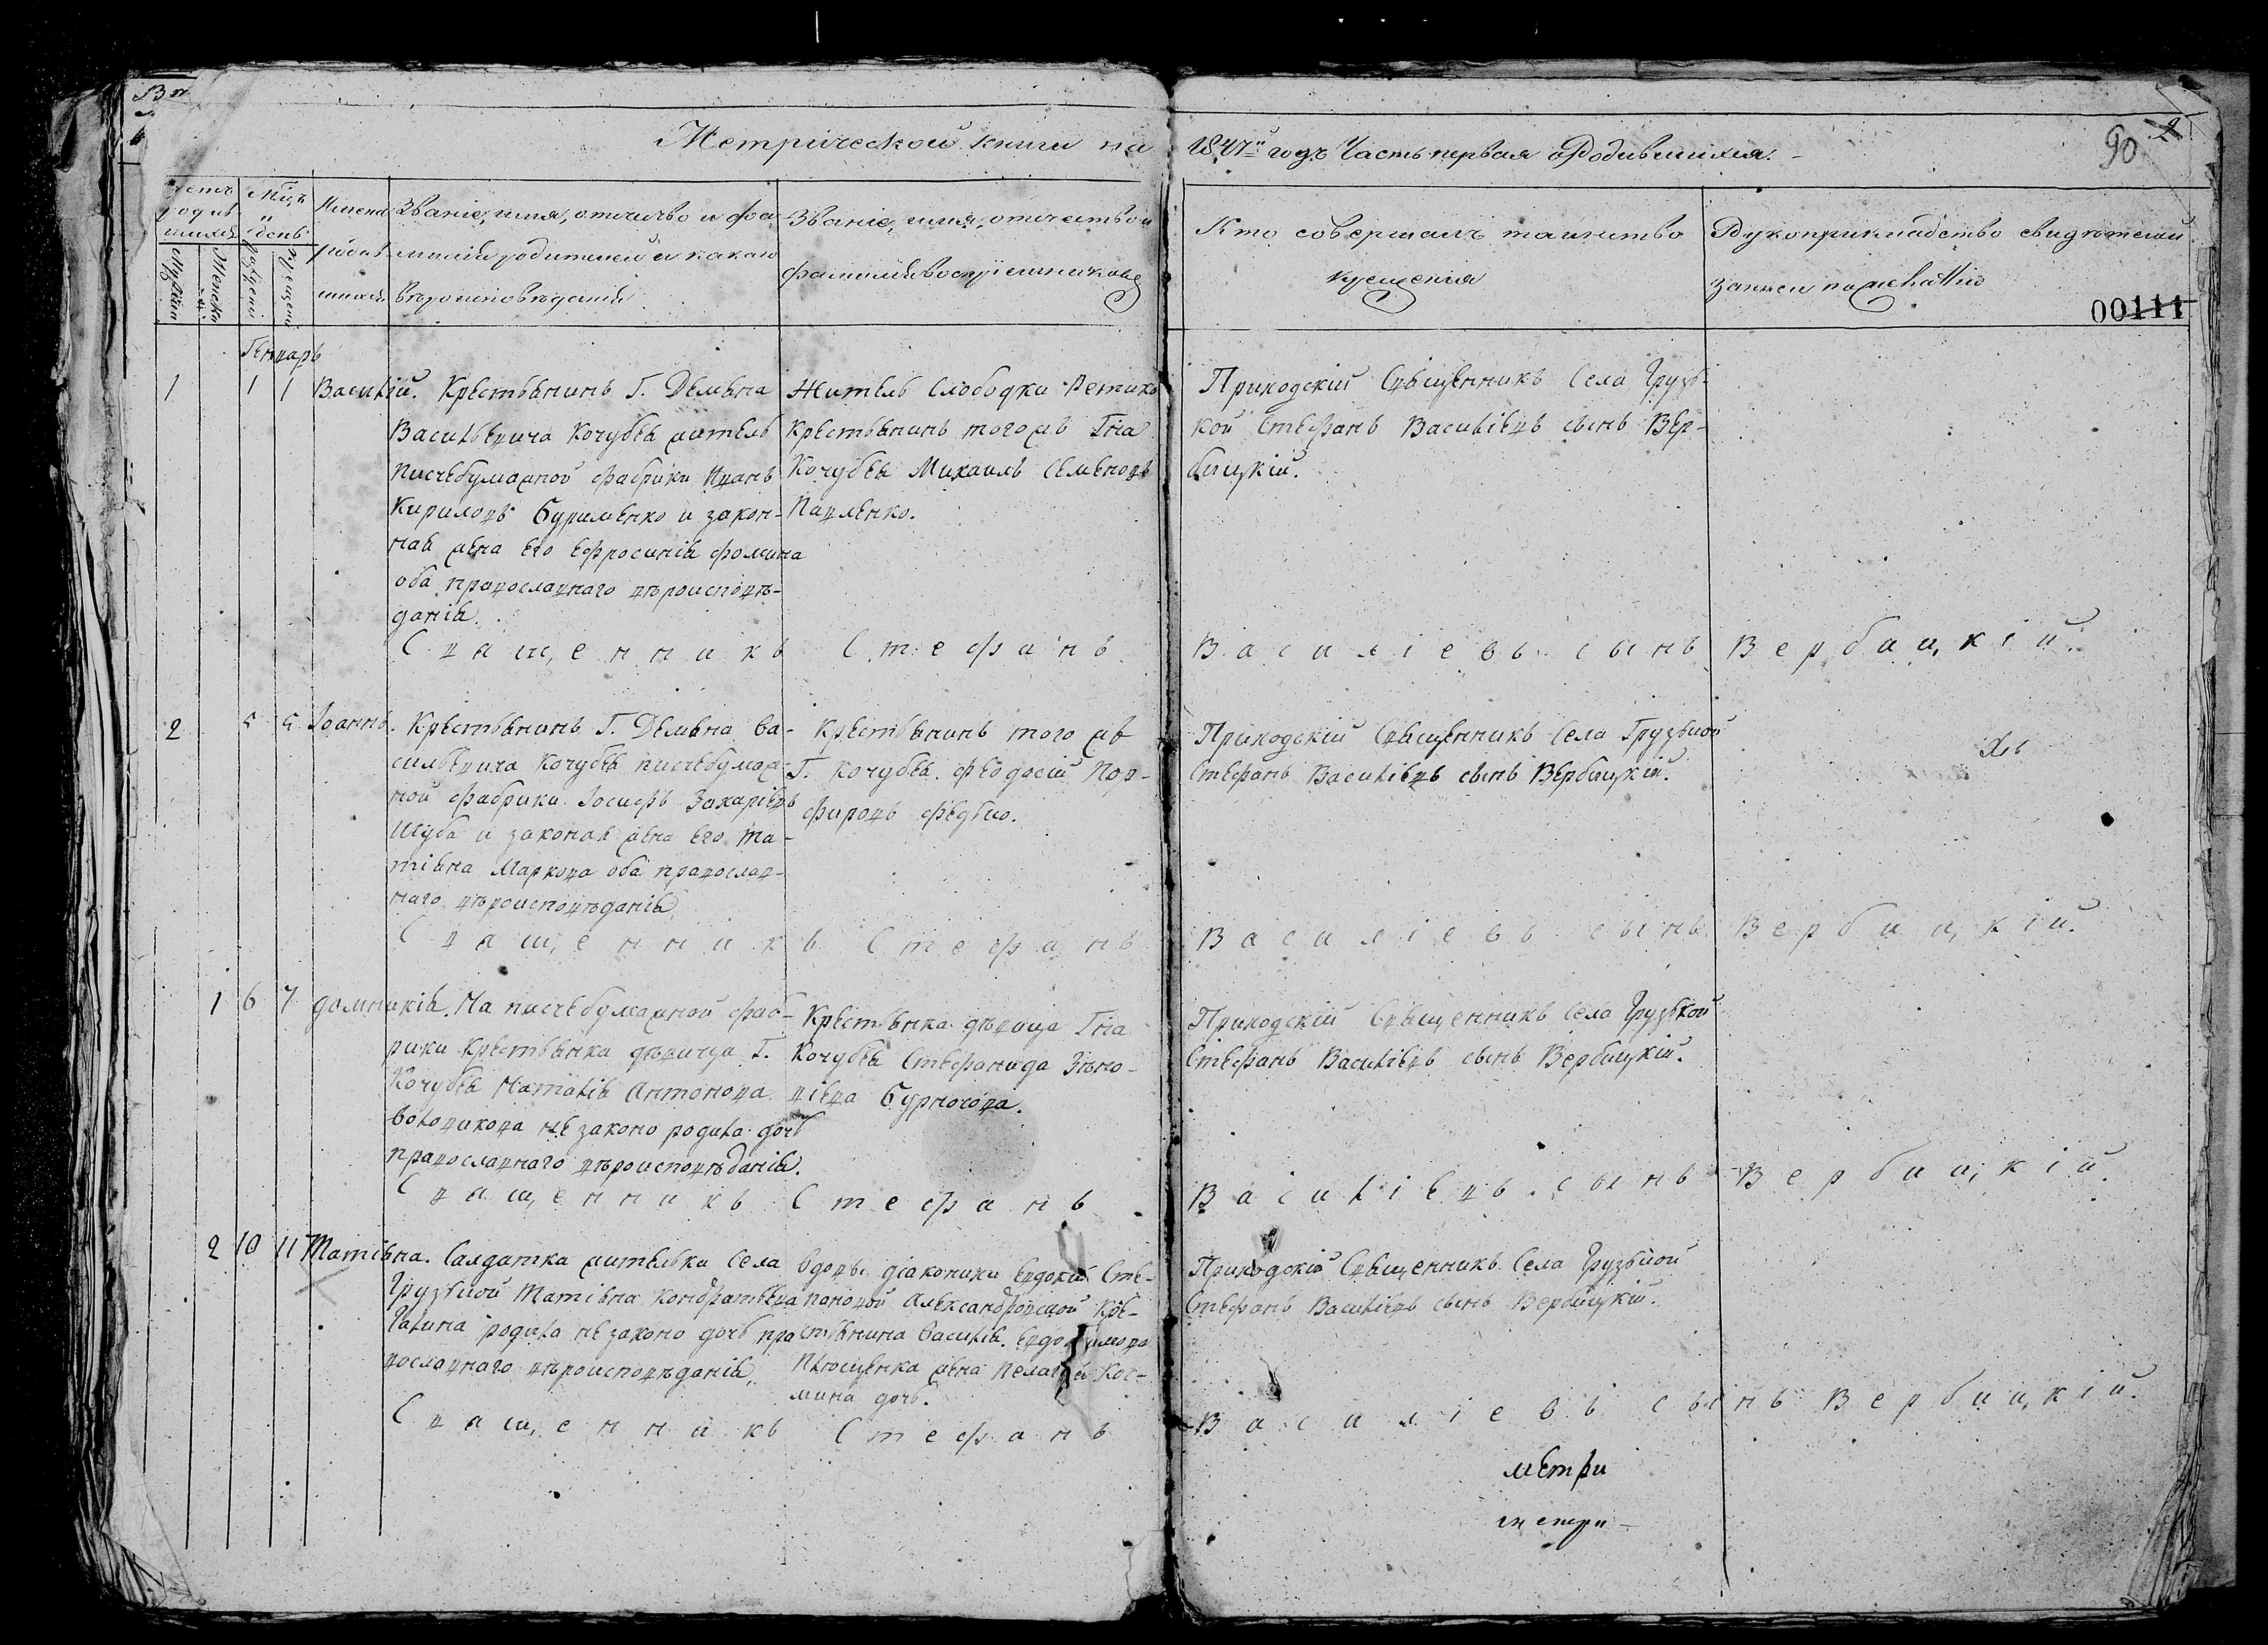 Метрической книги на 1847й годъ Часть первая о Родившихся.
90
2
Счетъ родившихся
Мужска
Женска
Мѣсяцъ и день
Рожденія
Крещенія
Имена родившихся
Званіе, имя, отчество и фамилія родителей и какаго вѣроисповѣданія
Званіе, имя, отчество и фамилія воспріемниковъ
Кто совершалъ таинство крещенія
Рукоприкладство свидѣтелей записи по желанію
00111
Генварь
1 1 1 Василій.
Крестьянинъ Г. Демьяна
Васильевича Кочубея житель
писчебумажной фабрики Иванъ
Кириловъ Буrименко и закон-
ная жена его Ефросинія Фомина
оба православнаго вѣроисповѣ-
данія.
Житель Слободки Ретика
крестьянинъ тогожъ Гна
Кочубея Михаилъ Семеновъ
Павленко.
Приходскій Священникъ Села Грузь-
кой Стефанъ Василіевъ сынъ Вер-
бицкій.
Священникъ Стефанъ Василіевъ сынъ Вербицкій.
2 5 5 Іоаннъ.
Крестьянинъ Г. Демьяна Ва-
сильевича Кочубея писчебумаж-
ной фабрики Іосифъ Захаріевъ
Шуба и законая жена его Та-
тіяна Маркова оба православ-
наго вѣроисповѣданія
Крестьянинъ того же
Г. Кочубея Феодосій Пор-
фировъ Федько.
Приходскій Священникъ Села Грузькой
Стефанъ Василіевъ сынъ Вербицкій.
Священникъ Стефанъ Василіевъ сынъ Вербицкій.
1 6 7 Домникія.
На писчебумажной фаб-
рики крестьянка дѣвица Г.
Кочубея Наталія Антонова
Воловикова не законо родила дочь
православнаго вѣроисповѣданія.
Крестьянка дѣвица Гна
Кочубея Стефанида Зѣно-
віева Бурносова.
Приходскій Священникъ Села Грузькой
Стефанъ Василіевъ сынъ Вербицкій.
Священникъ Стефанъ Василіевъ сынъ Вербицкій.
2 10 11 Татіяна.
Салдатка жителька Села
Грузької Татіяна Кондратьева
Галина родила не законо дочь пра
вославнаго вѣроисповѣданія,
Вдовы діаконики Евдокіи Сте-
пановой Александровской кре-
стьянина Василія Евдокимова
Плющенка жена Пелагія Кос-
мина дочь.
Приходскій Священникъ Села Грузькой
Стефанъ Василіевъ сынъ Вербицкій.
Священникъ Стефанъ Василіевъ сынъ Вербицкій.
метри